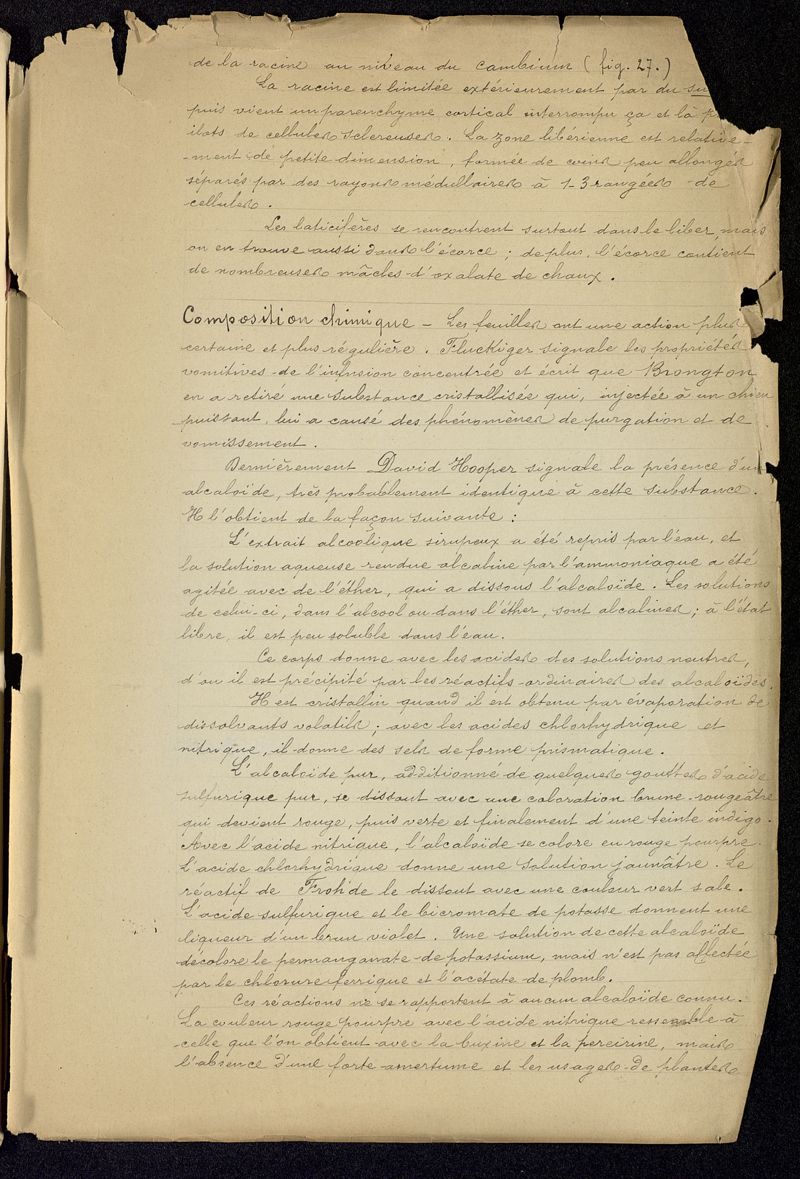 de la racine au niveau du cambium (fig. 27.)
La racine est limitée extérieurement par du su
puis vient un parenchyme cortical interrompu ça et là p
ilots de cellules scléreuses. La zone libérienne est relative-
-ment de petite dimension, formée de coins peu allongés
séparés par des rayons médullaires à 1-3 rangées de
cellules.
Les laticifères se rencontrent surtout dans le liber, mais
on en trouve aussi dans l'écorce ; de plus, l'écorce contient
de nombreuses mâcles d'oxalate de chaux.
Composition chimique - Les feuilles ont une action plus
certaine et plus régulière. Fluckiger signale les propriétés
vomitives de l'infusion concentrée et écrit que Brongton
en a retiré une substance cristallisée qui, injectée à un chien
puissant, lui a causé des phénomènes de purgation et de
vomissement.
Dernièrement David Hooper signale la présence d'un
alcaloïde, très probablement identique à cette substance.
Il l'obtient de la façon suivante :
L'extrait alcoolique sirupeux a été repris par l'eau, et
la solution aqueuse rendue alcaline par l'ammoniaque a été
agitée avec de l'éther, qui a dissous l'alcaloïde. Les solutions
de celui-ci, dans l'alcool ou dans l'éther, sont alcalines ; à l'état
libre, il est peu soluble dans l'eau.
Ce corps donne avec les acides des solutions neutres,
d'ou il est précipité par les réactifs ordinaires des alcaloïdes.
Il est cristallin quand il est obtenu par évaporation de
dissolvants volatils ; avec les acides chlorhydrique et
nitrique, il donne des sels de forme prismatique.
L'alcaloïde pur, additionné de quelques gouttes d'acide
sulfurique pur, se dissout avec une coloration brune-rougeâtre
qui devient rouge, puis verte et finalement d'une teinte indigo.
Avec l'acide nitrique, l'alcaloïde se colore en rouge pourpre.
L'acide chlorhydrique donne une solution jaunâtre. Le
réactif de Frohde le dissout avec une couleur vert sale.
L'acide sulfurique et le bicromate de potasse donnent une
liqueur d'un brun violet. Une solution de cette alcaloïde
décolore le permanganate de potassium, mais n'est pas affectée
par le chlorure ferrique et l'acétate de plomb.
Ces réactions ne se rapportent à aucun alcaloïde connu.
La couleur rouge pourpre avec l'acide nitrique ressemble à
celle que l'on obtient avec la buxine et la pereirine, mais
l'absence d'une forte amertume et les usages de plantes